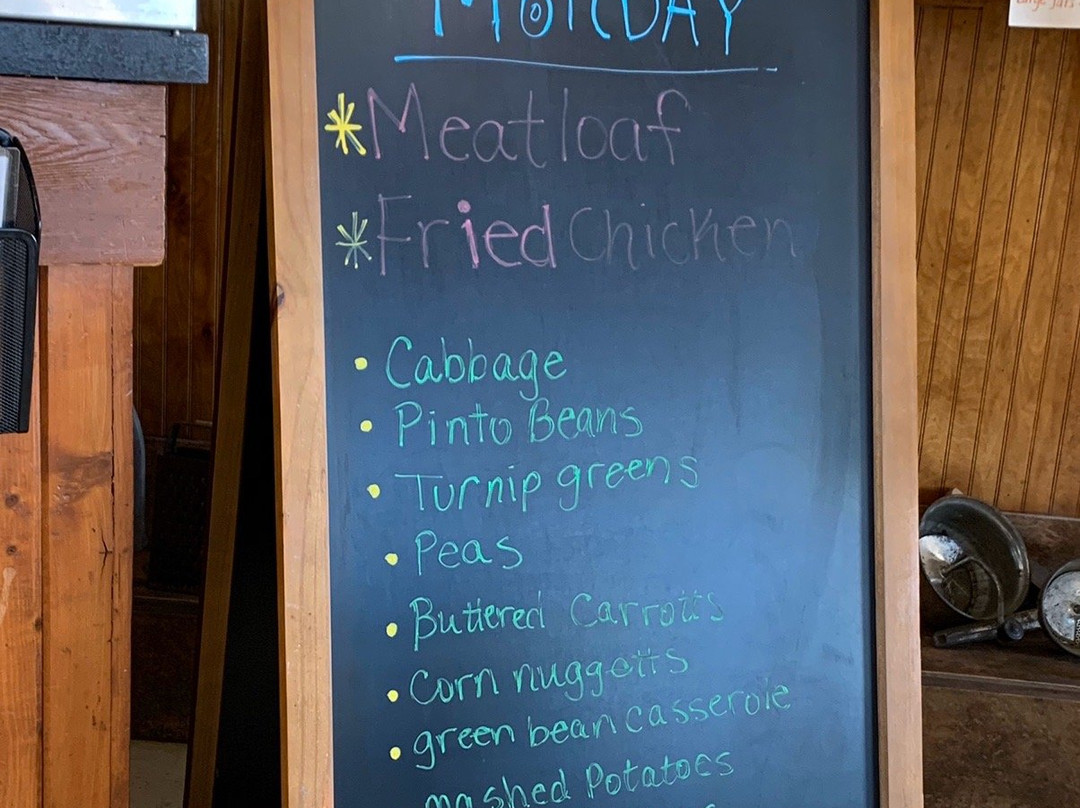 MONDAY
*Meatloaf
*Fried Chicken
• Cabbage
• Pinto Beans
• Turnip greens
• Peas
• Buttered Carrotts
• Corn nuggetts
• green bean casserole
mashed Potatoes